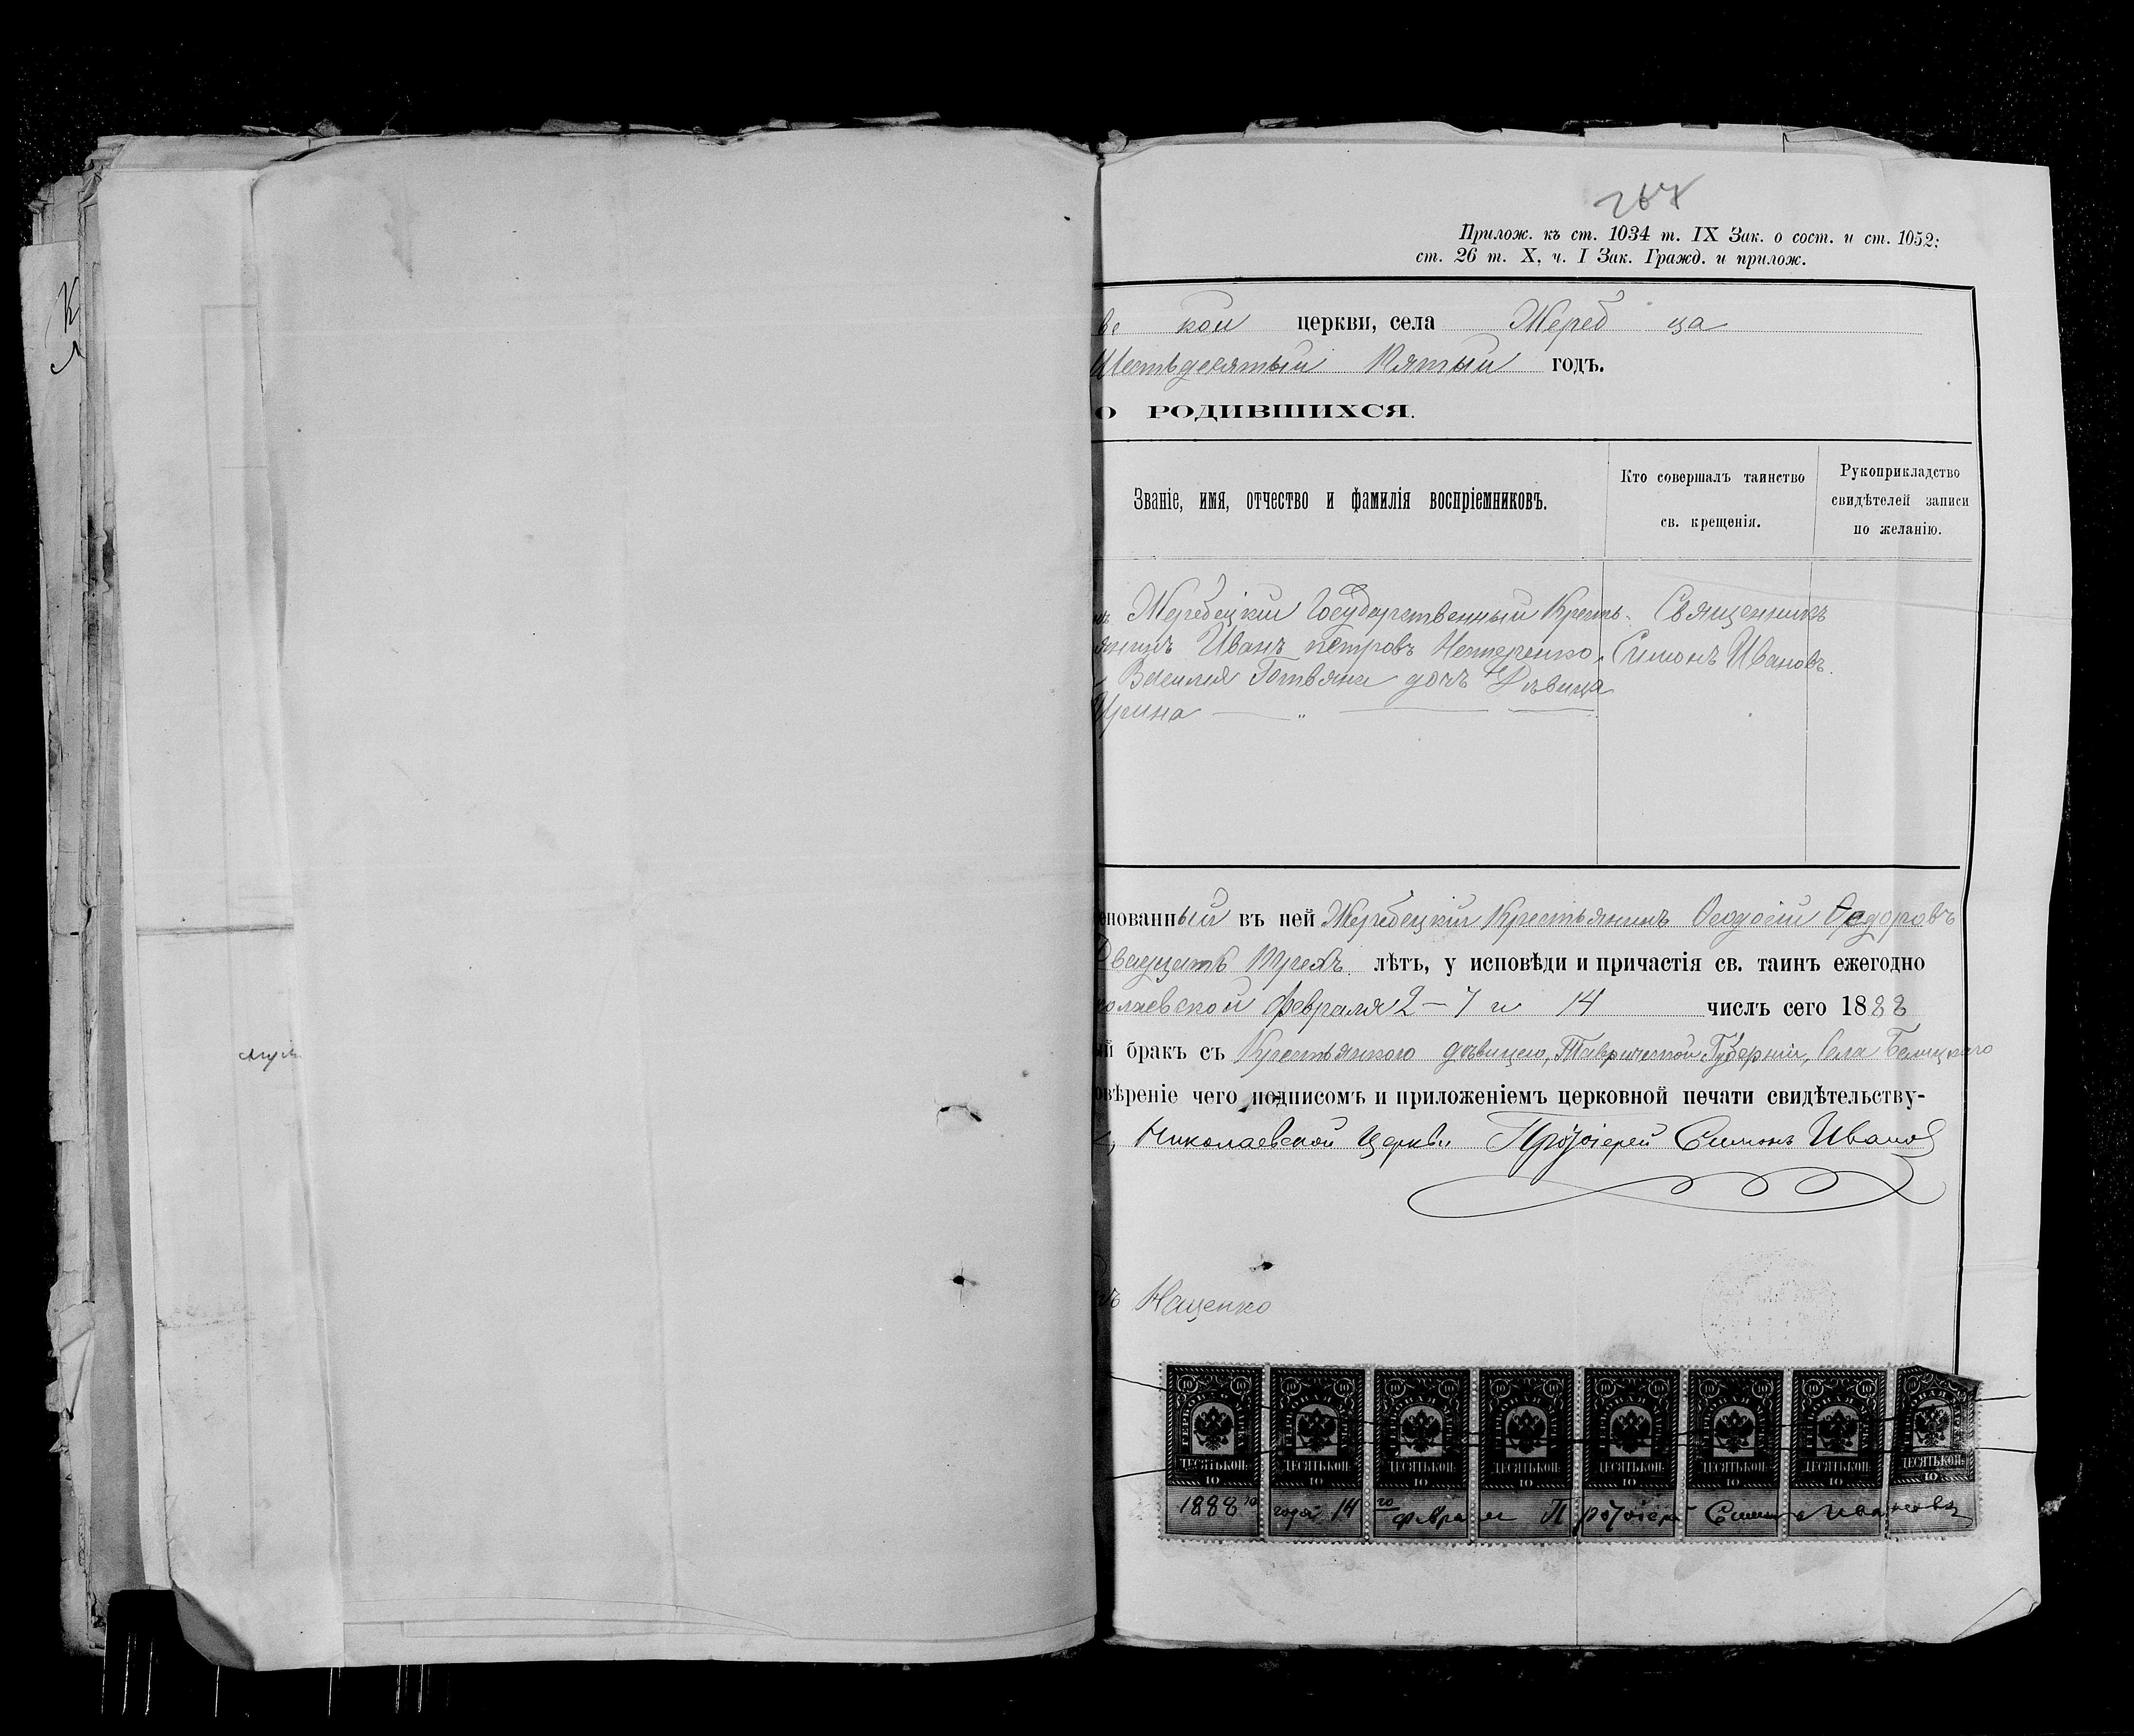 267
Прилож. къ ст. 1034 т. IX Зак. о сост. и ст. 1052;
ст. 26 т. X, ч. I Зак. Гражд. и прилож.
кой церкви, села Жереб ца
Шестьдесятый Пятый годъ.
О РОДИВШИХСЯ.
Званіе, имя, отчество и фамилія воспріемниковъ.
Кто совершалъ таинство
св. крещенія.
Рукоприкладство
свидѣтелей записи
по желанію.
Жеребецкій Государственный Кресть-
янинъ Иванъ Петровъ Нестеренко,
Василія дочь Дѣвица
Ирина
Священникъ
Симонъ Ивановъ.
енованный въ ней Жеребецкій Крестьянинъ Ѳеодосій Ѳедоровъ
Двадцать Трехъ лѣтъ, у исповѣди и причастія св. таинъ ежегодно
колаевской февраля 2 – 7 и 14 числъ сего 1888
ый бракъ съ Крестьянкою дѣвицею, Таврической Губерніи, Села
овѣреніе чего подписомъ и приложеніемъ церковной печати свидѣтельству-
Николаевской Церкви Протоіерей Симонъ Ивановъ
Наценко
ГЕРБОВАЯ МАРКА 10 ДЕСЯТЬ КОП: 10
1888 го года 14 го февраля Протоіерей Симонъ Ивановъ